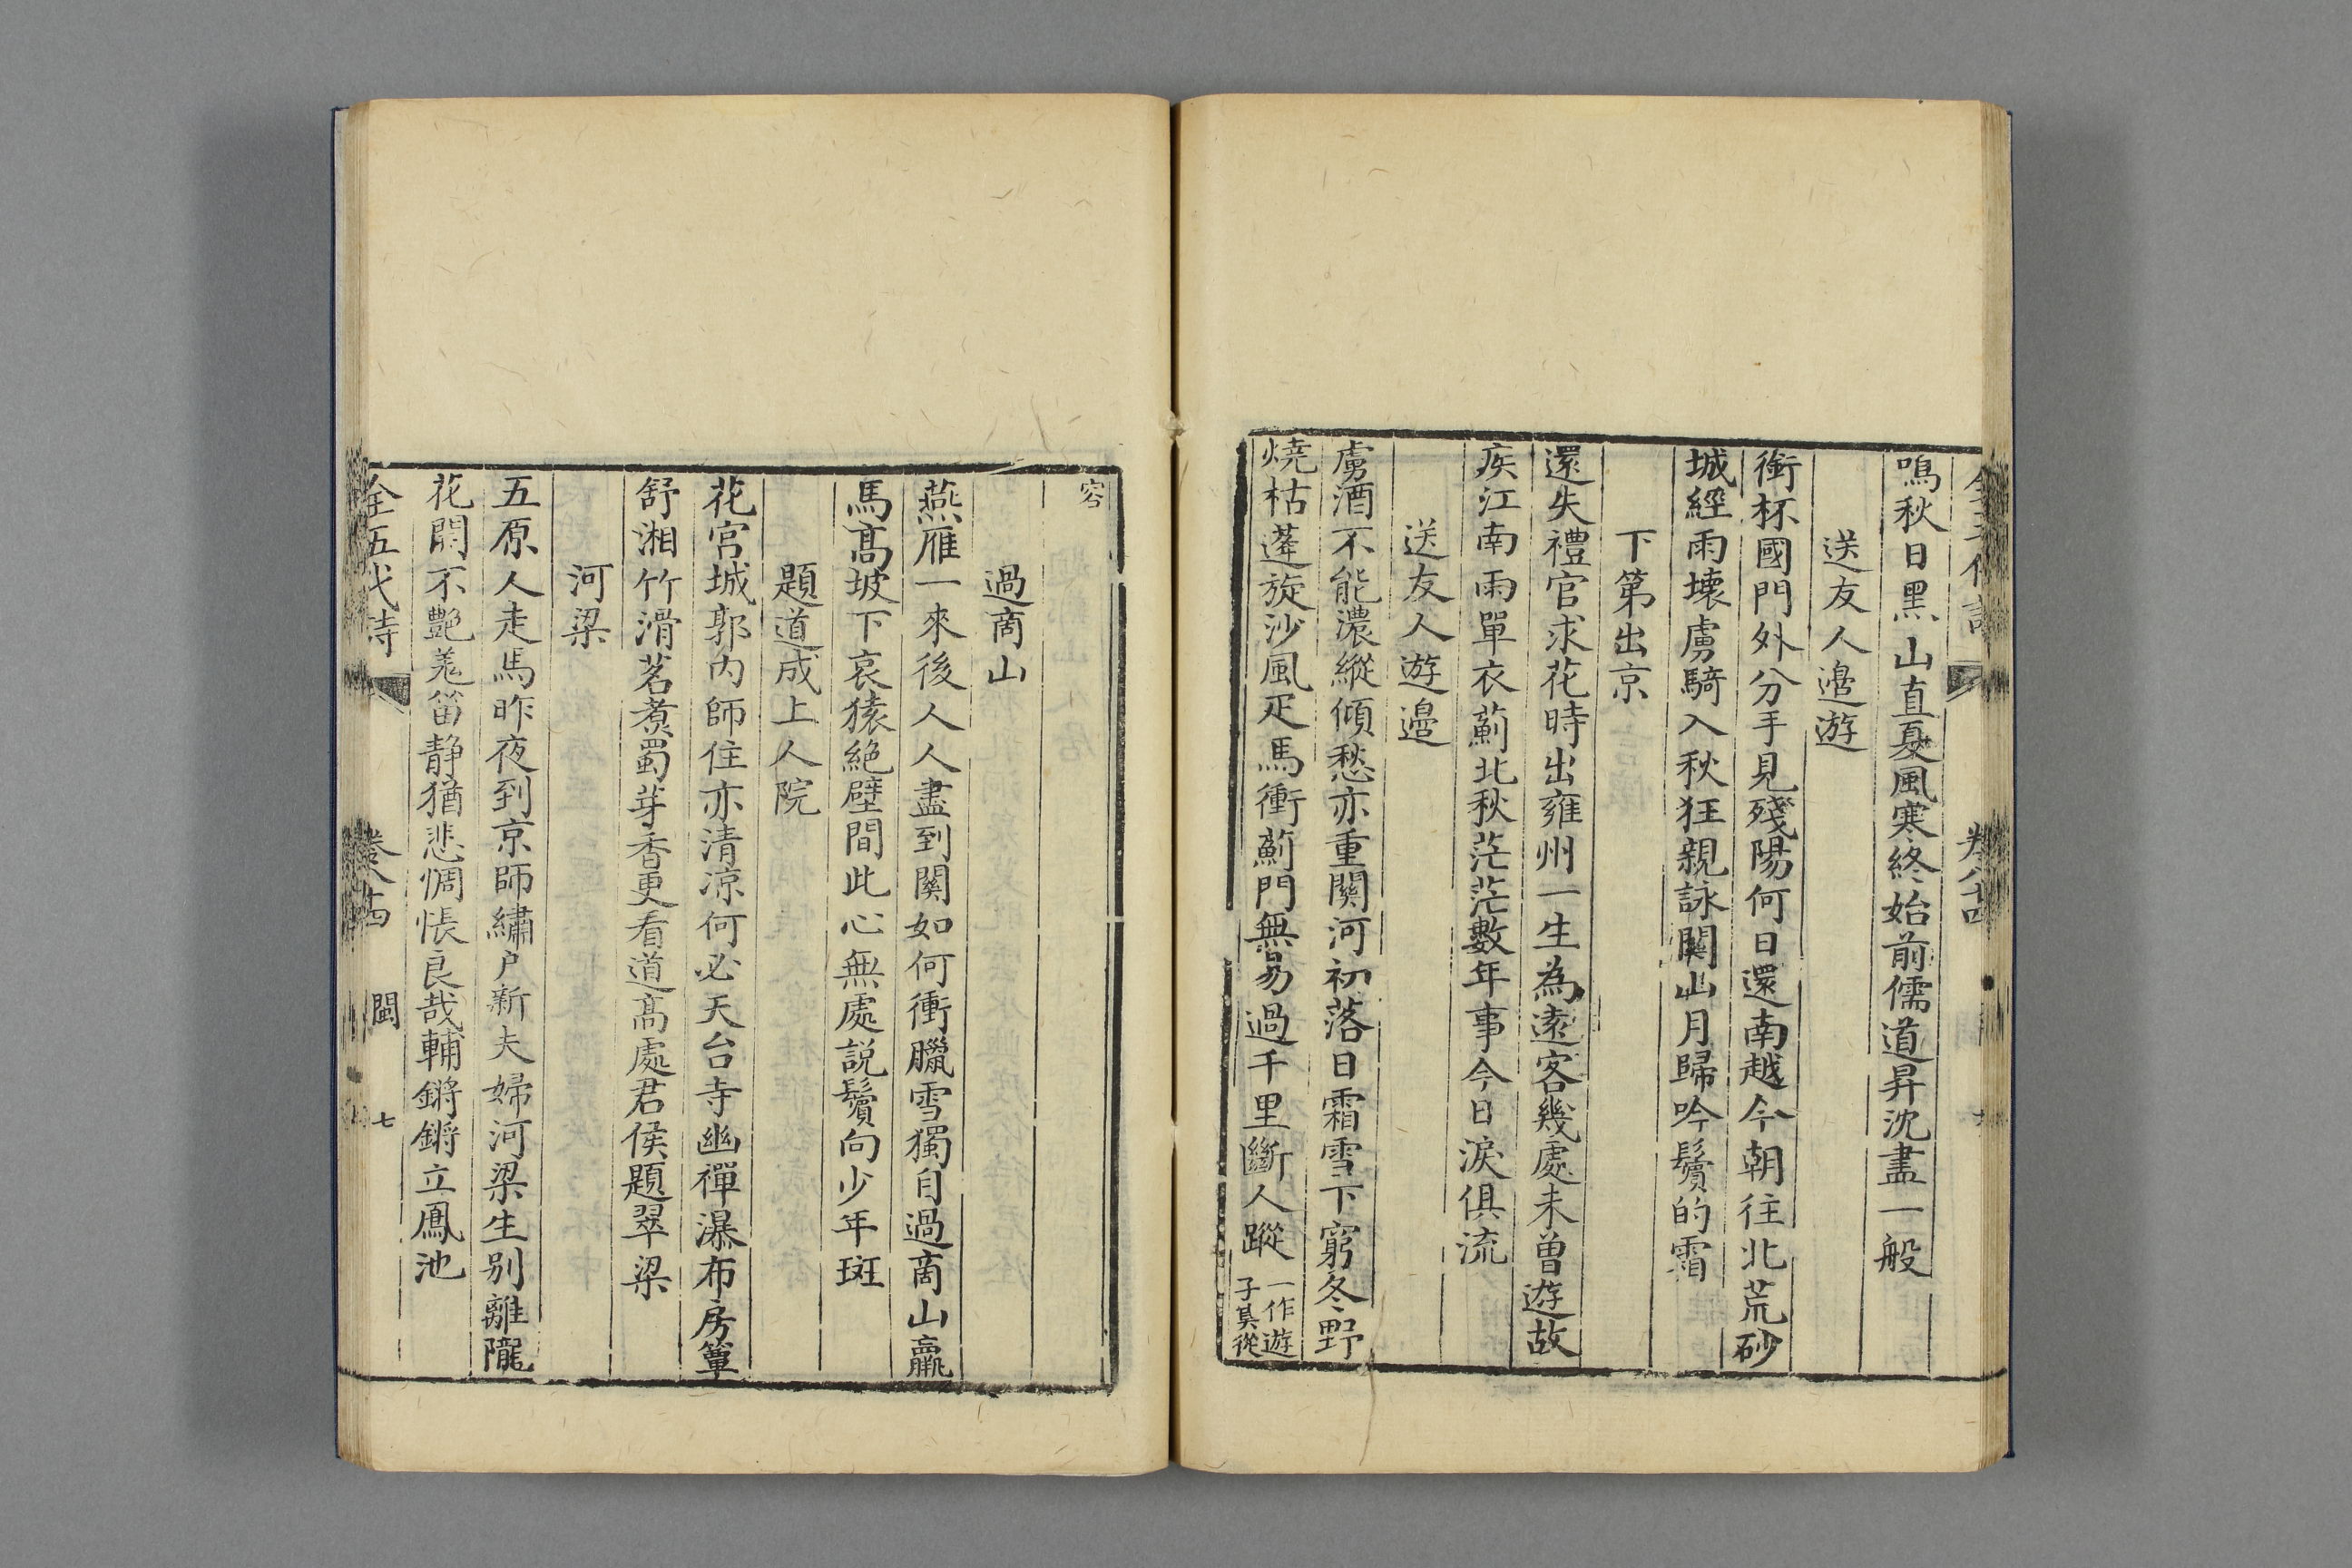 鳴秋日黑山直夏風寒終始前儒道昇沈盡一般
送友人邉遊
銜杯國門外分手見殘陽何日還南越今朝往北荒砂
城經雨壊虜騎入秋狂親詠關山月歸吟鬢的霜
下第出京
還失禮官求花時出雍州一生為遠客幾處未曽遊故
疾江南雨單衣薊北秋茫茫數年事今日淚俱流
送友人遊邉
虜酒不能濃縱傾愁亦重關河初落日霜雪下窮冬野
燒枯蓬旋沙風疋馬衝薊門無易過千里斷人蹤
一作遊
子莫從
容
過商山
燕雁一來後人人盡到關如何衝臘雪獨自過商山羸
馬髙坡下哀猿絶壁間此心無處説鬢向少年斑
題道成上人院
花宮城郭内師住亦清凉何必天台寺幽禪瀑布房簟
舒湘竹滑茗煮蜀芽香更看道髙處君侯題翠梁
河梁
五原人走馬昨夜到京師繡户新夫婦河梁生别離隴
花開不艷羗笛静猶悲惆悵良哉輔鏘鏘立鳳池
全五代詩
卷八十四
閩
七